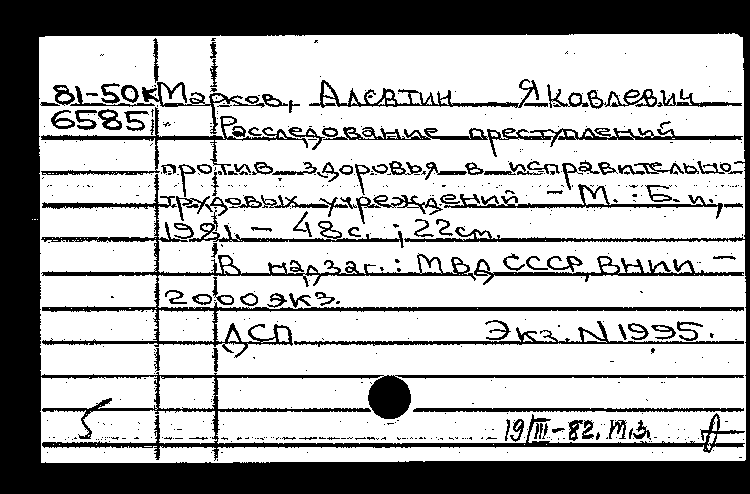 81-50к Марков, Алевтин Яковлевич
6585 Расследование преступлений
против здоровья в исправительно-
трудовых учреждений - М. : Б. и.,
1981. - 48 с. ; 22 см.
В надзаг.: МВД СССР, ВНИИ. -
2000 экз.
ДСП Экз. N 1995.
5 19/III-82. т.з.